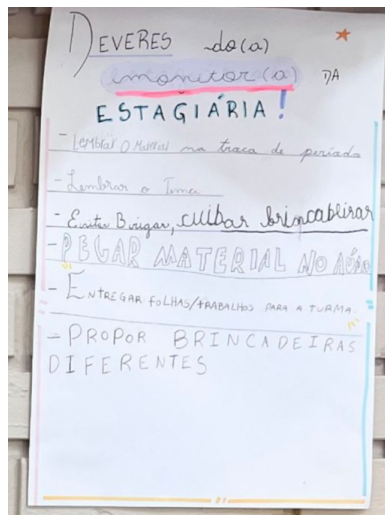 DEVERES do(a)
monitor(a) DA
ESTAGIÁRIA!
- Lembrar o Material na troca de período
- Lembrar o Tema
- Evitar Brigar, cuidar brincadeiras
- PEGAR MATERIAL NO
- ENTREGAR FOLHAS/TRABALHOS PARA A TURMA.
- PROPOR BRINCADEIRAS
DIFERENTES